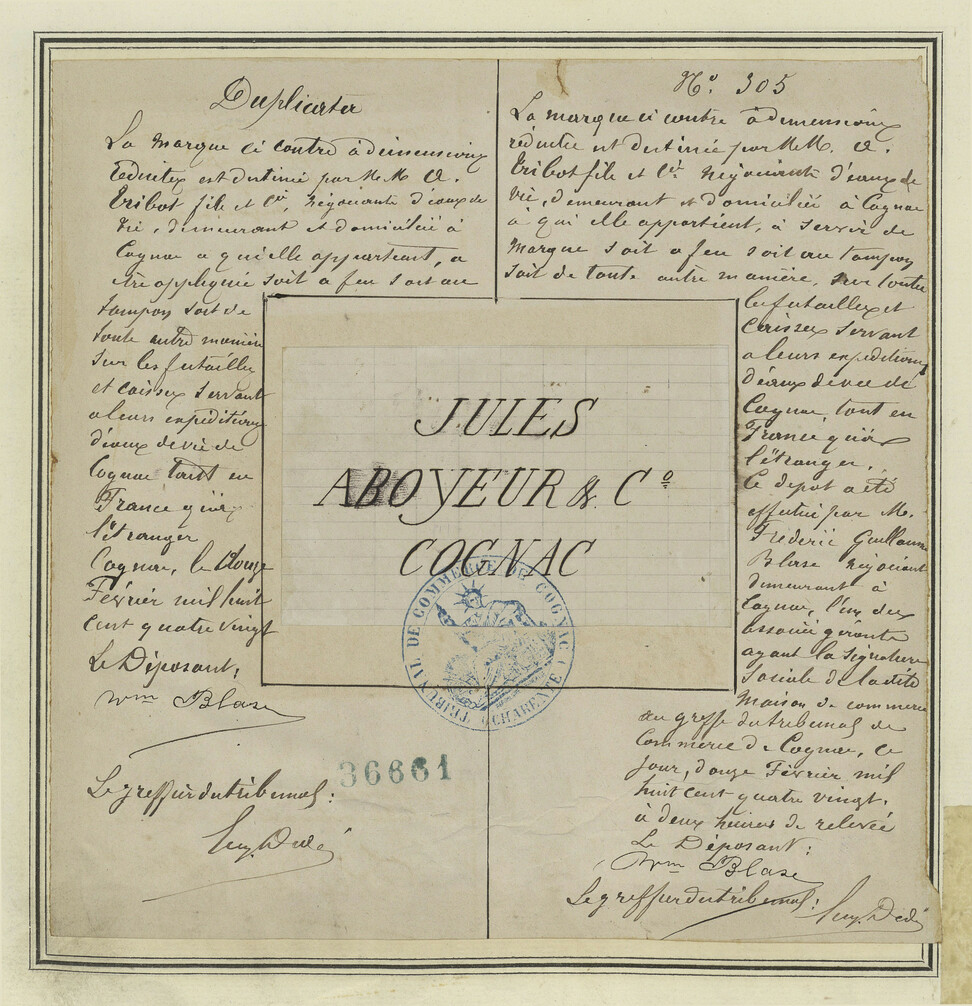 Duplicata
La marque ci contre à dimensions
réduites est destinée par M M A.
Tribot fils et Cie, négociants d'eaux de
vie, demeurant et domiciliés à
Cognac a qui elle appartient, a
être appliquée soit a feu soit au
tampon soit de
toute autre manière
sur les futailles
et caisses servant
a leurs expéditions
d'eaux de vie de
Cognac tant en
France qu'à
l'étranger
Cognac, le douze
Février mil huit
cent quatre vingt
Le Déposant,
Wm Blase
Le greffier du tribunal:
No. 305
La marque ci contre à dimensions
réduites est destinée par M M. A.
Tribot fils et Cie négociants d'eaux de
vie, demeurant et domiciliés à Cognac
à qui elle appartient, à servir de
marque soit a feu soit au tampon
soit de toute autre manière, sur toutes
les futailles et
caisses servant
a leurs expéditions
d'eaux de vie de
Cognac, tant en
France qu'à
l'étranger.
Ce depot a été
effectué par M.
Frédéric Guillaume
Blase négociant
demeurant à
Cognac, l'un des
associés gérants
ayant la signature
sociale de la dite
maison de commerce
au greffe du tribunal de
Commerce de Cognac, ce
jour, douze Février mil
huit cent quatre vingt,
à deux heures de relevée
Le Déposant:
Wm Blase
Le greffier du tribunal:
JULES
ABOYEUR & Co
COGNAC
TRIBUNAL DE COMMERCE DE COGNAC (CHARENTE)
36661